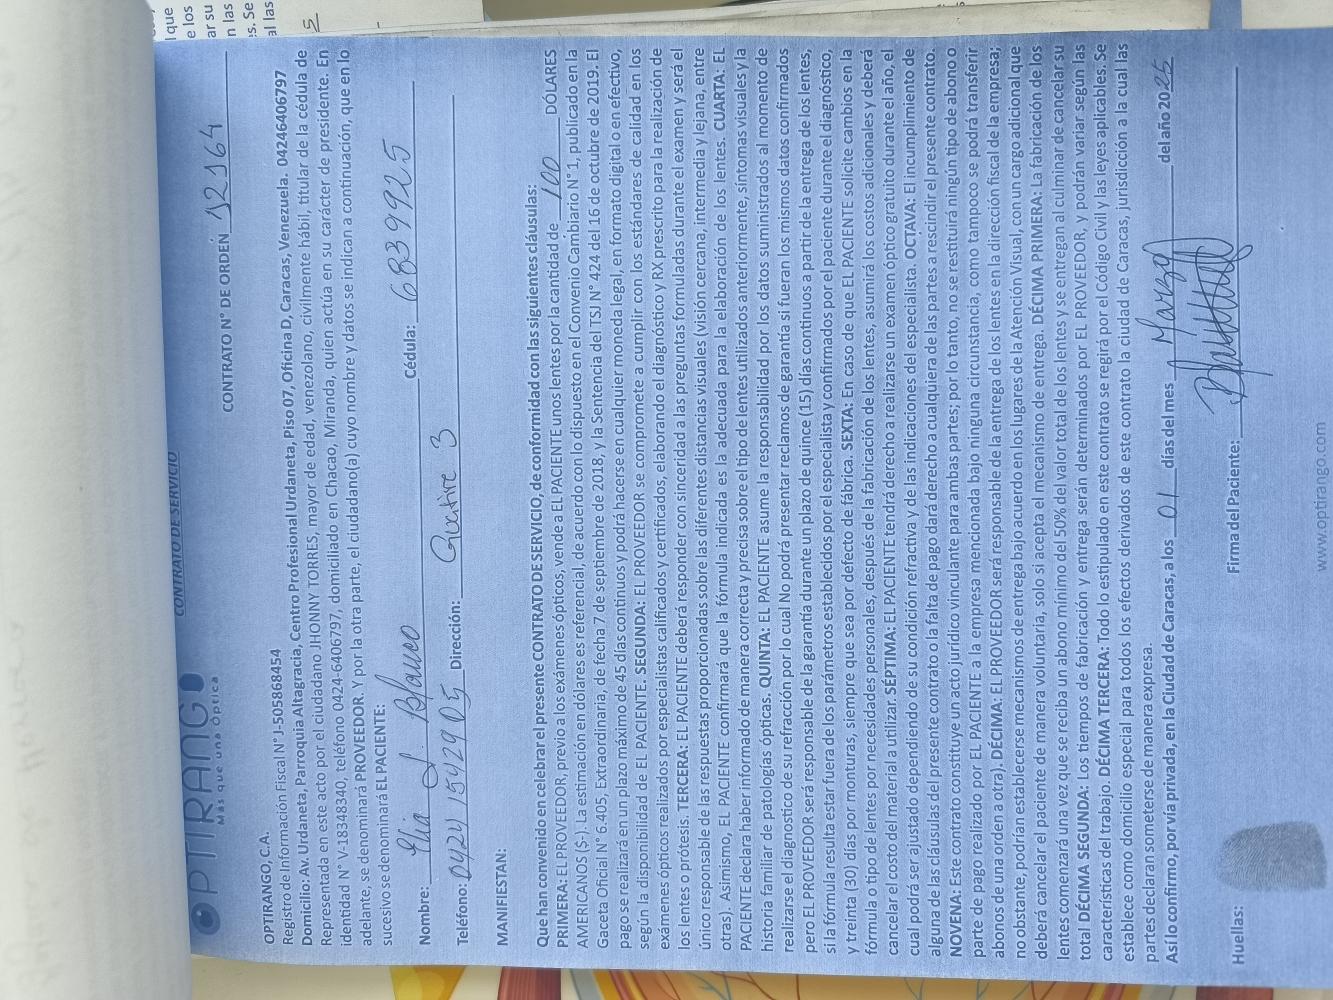 CONTRATO DE SERVICIO
OPTIRANGO
Más que una Óptica
CONTRATO N° DE ORDEN 12164
OPTIRANGO, C.A.
Registro de Información Fiscal N° J-505868454
Domicilio: Av. Urdaneta, Parroquia Altagracia, Centro Profesional Urdaneta, Piso 07, Oficina D, Caracas, Venezuela. 04246406797
Representada en este acto por el ciudadano JHONNY TORRES, mayor de edad, venezolano, civilmente hábil, titular de la cédula de
identidad N° V-18348340, teléfono 0424-6406797, domiciliado en Chacao, Miranda, quien actúa en su carácter de presidente. En
adelante, se denominará PROVEEDOR. Y por la otra parte, el ciudadano(a) cuyo nombre y datos se indican a continuación, que en lo
sucesivo se denominará EL PACIENTE:
Nombre: Blanco Cédula: 6839925
Teléfono: 0424 1542905 Dirección: 3
MANIFIESTAN:
Que han convenido en celebrar el presente CONTRATO DE SERVICIO, de conformidad con las siguientes cláusulas:
PRIMERA: EL PROVEEDOR, previo a los exámenes ópticos, vende a EL PACIENTE unos lentes por la cantidad de 100 DÓLARES
AMERICANOS ($-). La estimación en dólares es referencial, de acuerdo con lo dispuesto en el Convenio Cambiario N° 1, publicado en la
Gaceta Oficial N° 6.405, Extraordinaria, de fecha 7 de septiembre de 2018, y la Sentencia del TSJ N° 424 del 16 de octubre de 2019. El
pago se realizará en un plazo máximo de 45 días continuos y podrá hacerse en cualquier moneda legal, en formato digital o en efectivo,
según la disponibilidad de EL PACIENTE. SEGUNDA: EL PROVEEDOR se compromete a cumplir con los estándares de calidad en los
exámenes ópticos realizados por especialistas calificados y certificados, elaborando el diagnóstico y RX prescrito para la realización de
los lentes o prótesis. TERCERA: EL PACIENTE deberá responder con sinceridad a las preguntas formuladas durante el examen y será el
único responsable de las respuestas proporcionadas sobre las diferentes distancias visuales (visión cercana, intermedia y lejana, entre
otras). Asimismo, EL PACIENTE confirmará que la fórmula indicada es la adecuada para la elaboración de los lentes. CUARTA: EL
PACIENTE declara haber informado de manera correcta y precisa sobre el tipo de lentes utilizados anteriormente, síntomas visuales y la
historia familiar de patologías ópticas. QUINTA: EL PACIENTE asume la responsabilidad por los datos suministrados al momento de
realizarse el diagnostico de su refracción por lo cual No podrá presentar reclamos de garantía si fueran los mismos datos confirmados
pero EL PROVEEDOR será responsable de la garantía durante un plazo de quince (15) días continuos a partir de la entrega de los lentes,
si la fórmula resulta estar fuera de los parámetros establecidos por el especialista y confirmados por el paciente durante el diagnóstico,
y treinta (30) días por monturas, siempre que sea por defecto de fábrica. SEXTA: En caso de que EL PACIENTE solicite cambios en la
fórmula o tipo de lentes por necesidades personales, después de la fabricación de los lentes, asumirá los costos adicionales y deberá
cancelar el costo del material a utilizar. SÉPTIMA: EL PACIENTE tendrá derecho a realizarse un examen óptico gratuito durante el año, el
cual podrá ser ajustado dependiendo de su condición refractiva y de las indicaciones del especialista. OCTAVA: El incumplimiento de
alguna de las cláusulas del presente contrato o la falta de pago dará derecho a cualquiera de las partes a rescindir el presente contrato.
NOVENA: Este contrato constituye un acto jurídico vinculante para ambas partes; por lo tanto, no se restituirá ningún tipo de abono o
parte de pago realizado por EL PACIENTE a la empresa mencionada bajo ninguna circunstancia, como tampoco se podrá transferir
abonos de una orden a otra). DÉCIMA: EL PROVEEDOR será responsable de la entrega de los lentes en la dirección fiscal de la empresa;
no obstante, podrían establecerse mecanismos de entrega bajo acuerdo en los lugares de la Atención Visual, con un cargo adicional que
deberá cancelar el paciente de manera voluntaria, solo si acepta el mecanismo de entrega. DÉCIMA PRIMERA: La fabricación de los
lentes comenzará una vez que se reciba un abono mínimo del 50% del valor total de los lentes y se entregan al culminar de cancelar su
total DÉCIMA SEGUNDA: Los tiempos de fabricación y entrega serán determinados por EL PROVEEDOR, y podrán variar según las
características del trabajo. DÉCIMA TERCERA: Todo lo estipulado en este contrato se regirá por el Código Civil y las leyes aplicables. Se
establece como domicilio especial para todos los efectos derivados de este contrato la ciudad de Caracas, jurisdicción a la cual las
partes declaran someterse de manera expresa.
Así lo confirmo, por vía privada, en la Ciudad de Caracas, a los 01 días del mes Marzo del año 2025
Firma del Paciente:
Huellas:
www.optirango.com